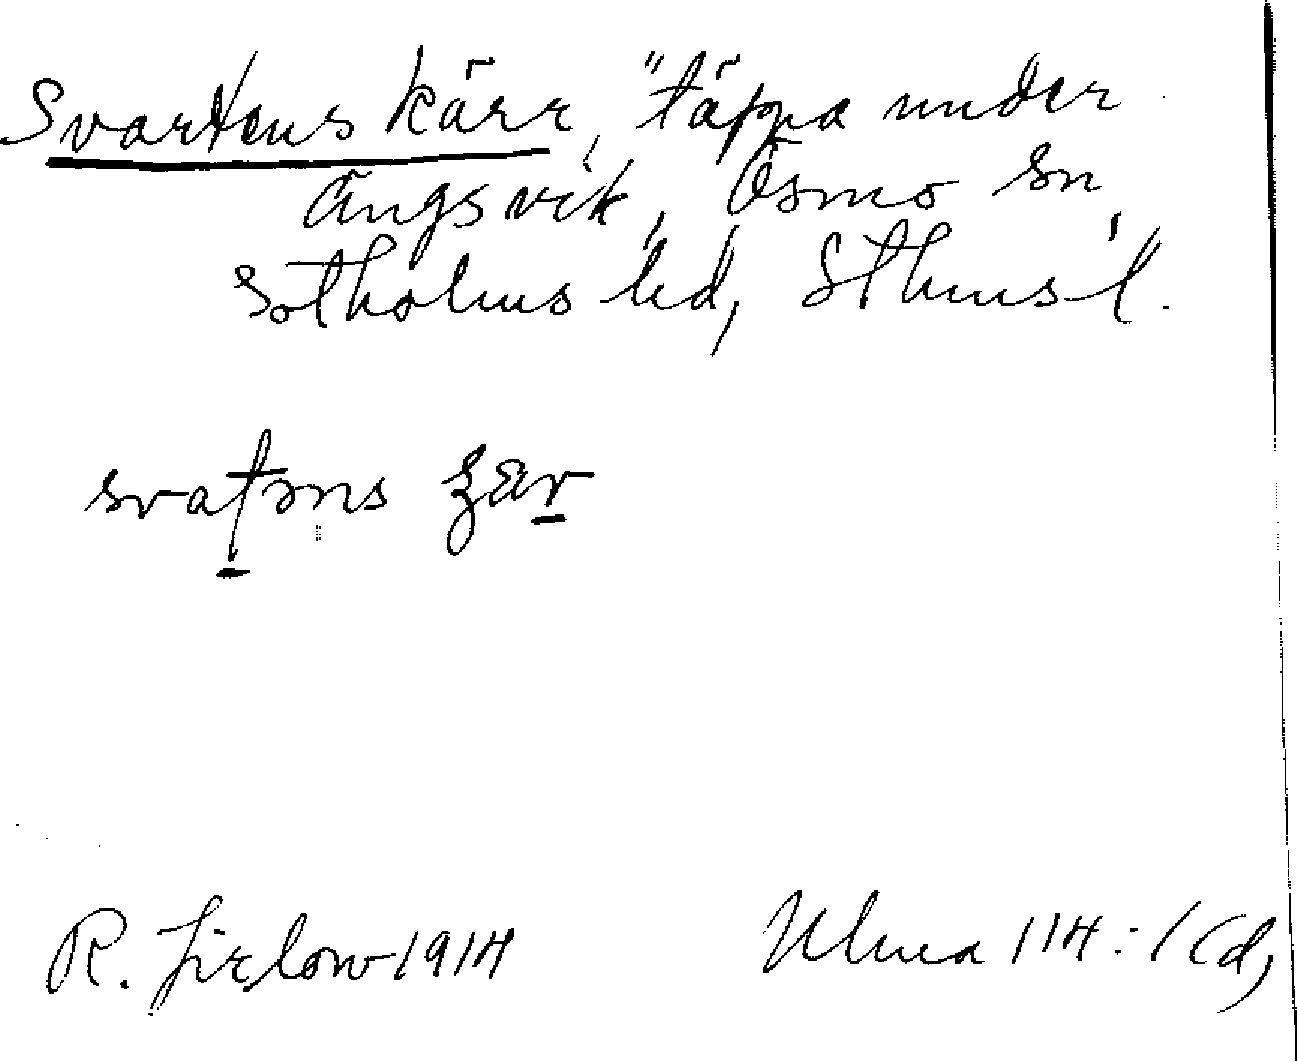 Svartens kärr, "täppa under
Ängsvik, Ösmo sn,
Sotholms hd, Sthms l.
svatəns ʒær
R. Jirlow 1914
Ulma 114:1(d)